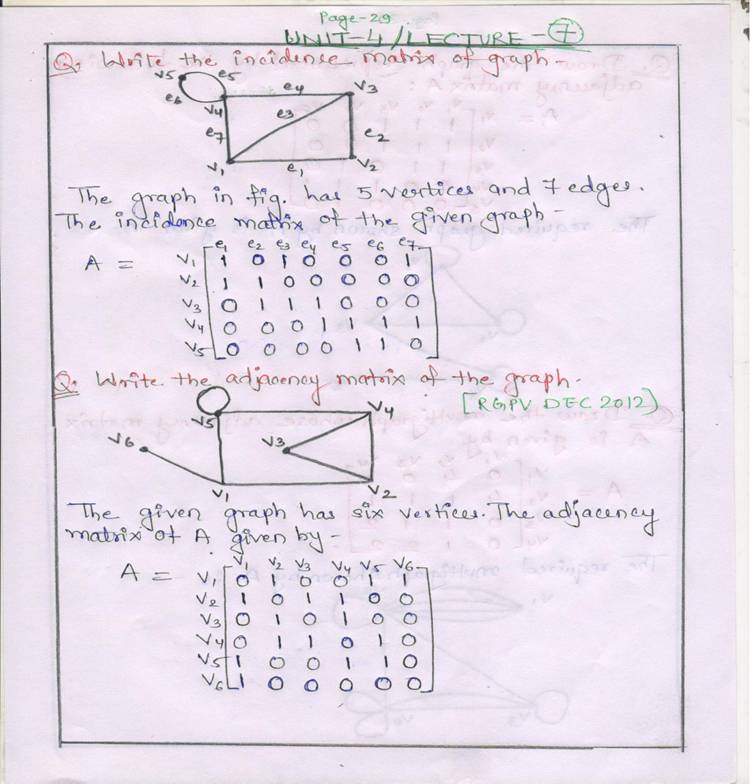 Page-29
UNIT-4/LECTURE-7
Q. Write the incidence matrix of graph-
v5 e5
e4 v3
e6 v4 e3
e7 e2
v1 e1 v2
The graph in fig. has 5 vertices and 7 edges.
The incidence matrix of the given graph-
e1 e2 e3 e4 e5 e6 e7
A = v1 1 0 1 0 0 0 1
v2 1 1 0 0 0 0 0
v3 0 1 1 1 0 0 0
v4 0 0 0 1 1 1 1
v5 0 0 0 0 1 1 0
Q. Write the adjacency matrix of the graph.
[RGPV DEC 2012)
v5 v4
v6 v3
v1 v2
The given graph has six vertices. The adjacency
matrix of A given by-
v1 v2 v3 v4 v5 v6
A = v1 0 1 0 0 1 1
v2 1 0 1 1 0 0
v3 0 1 0 1 0 0
v4 0 1 1 0 1 0
v5 1 0 0 1 1 0
v6 1 0 0 0 0 0